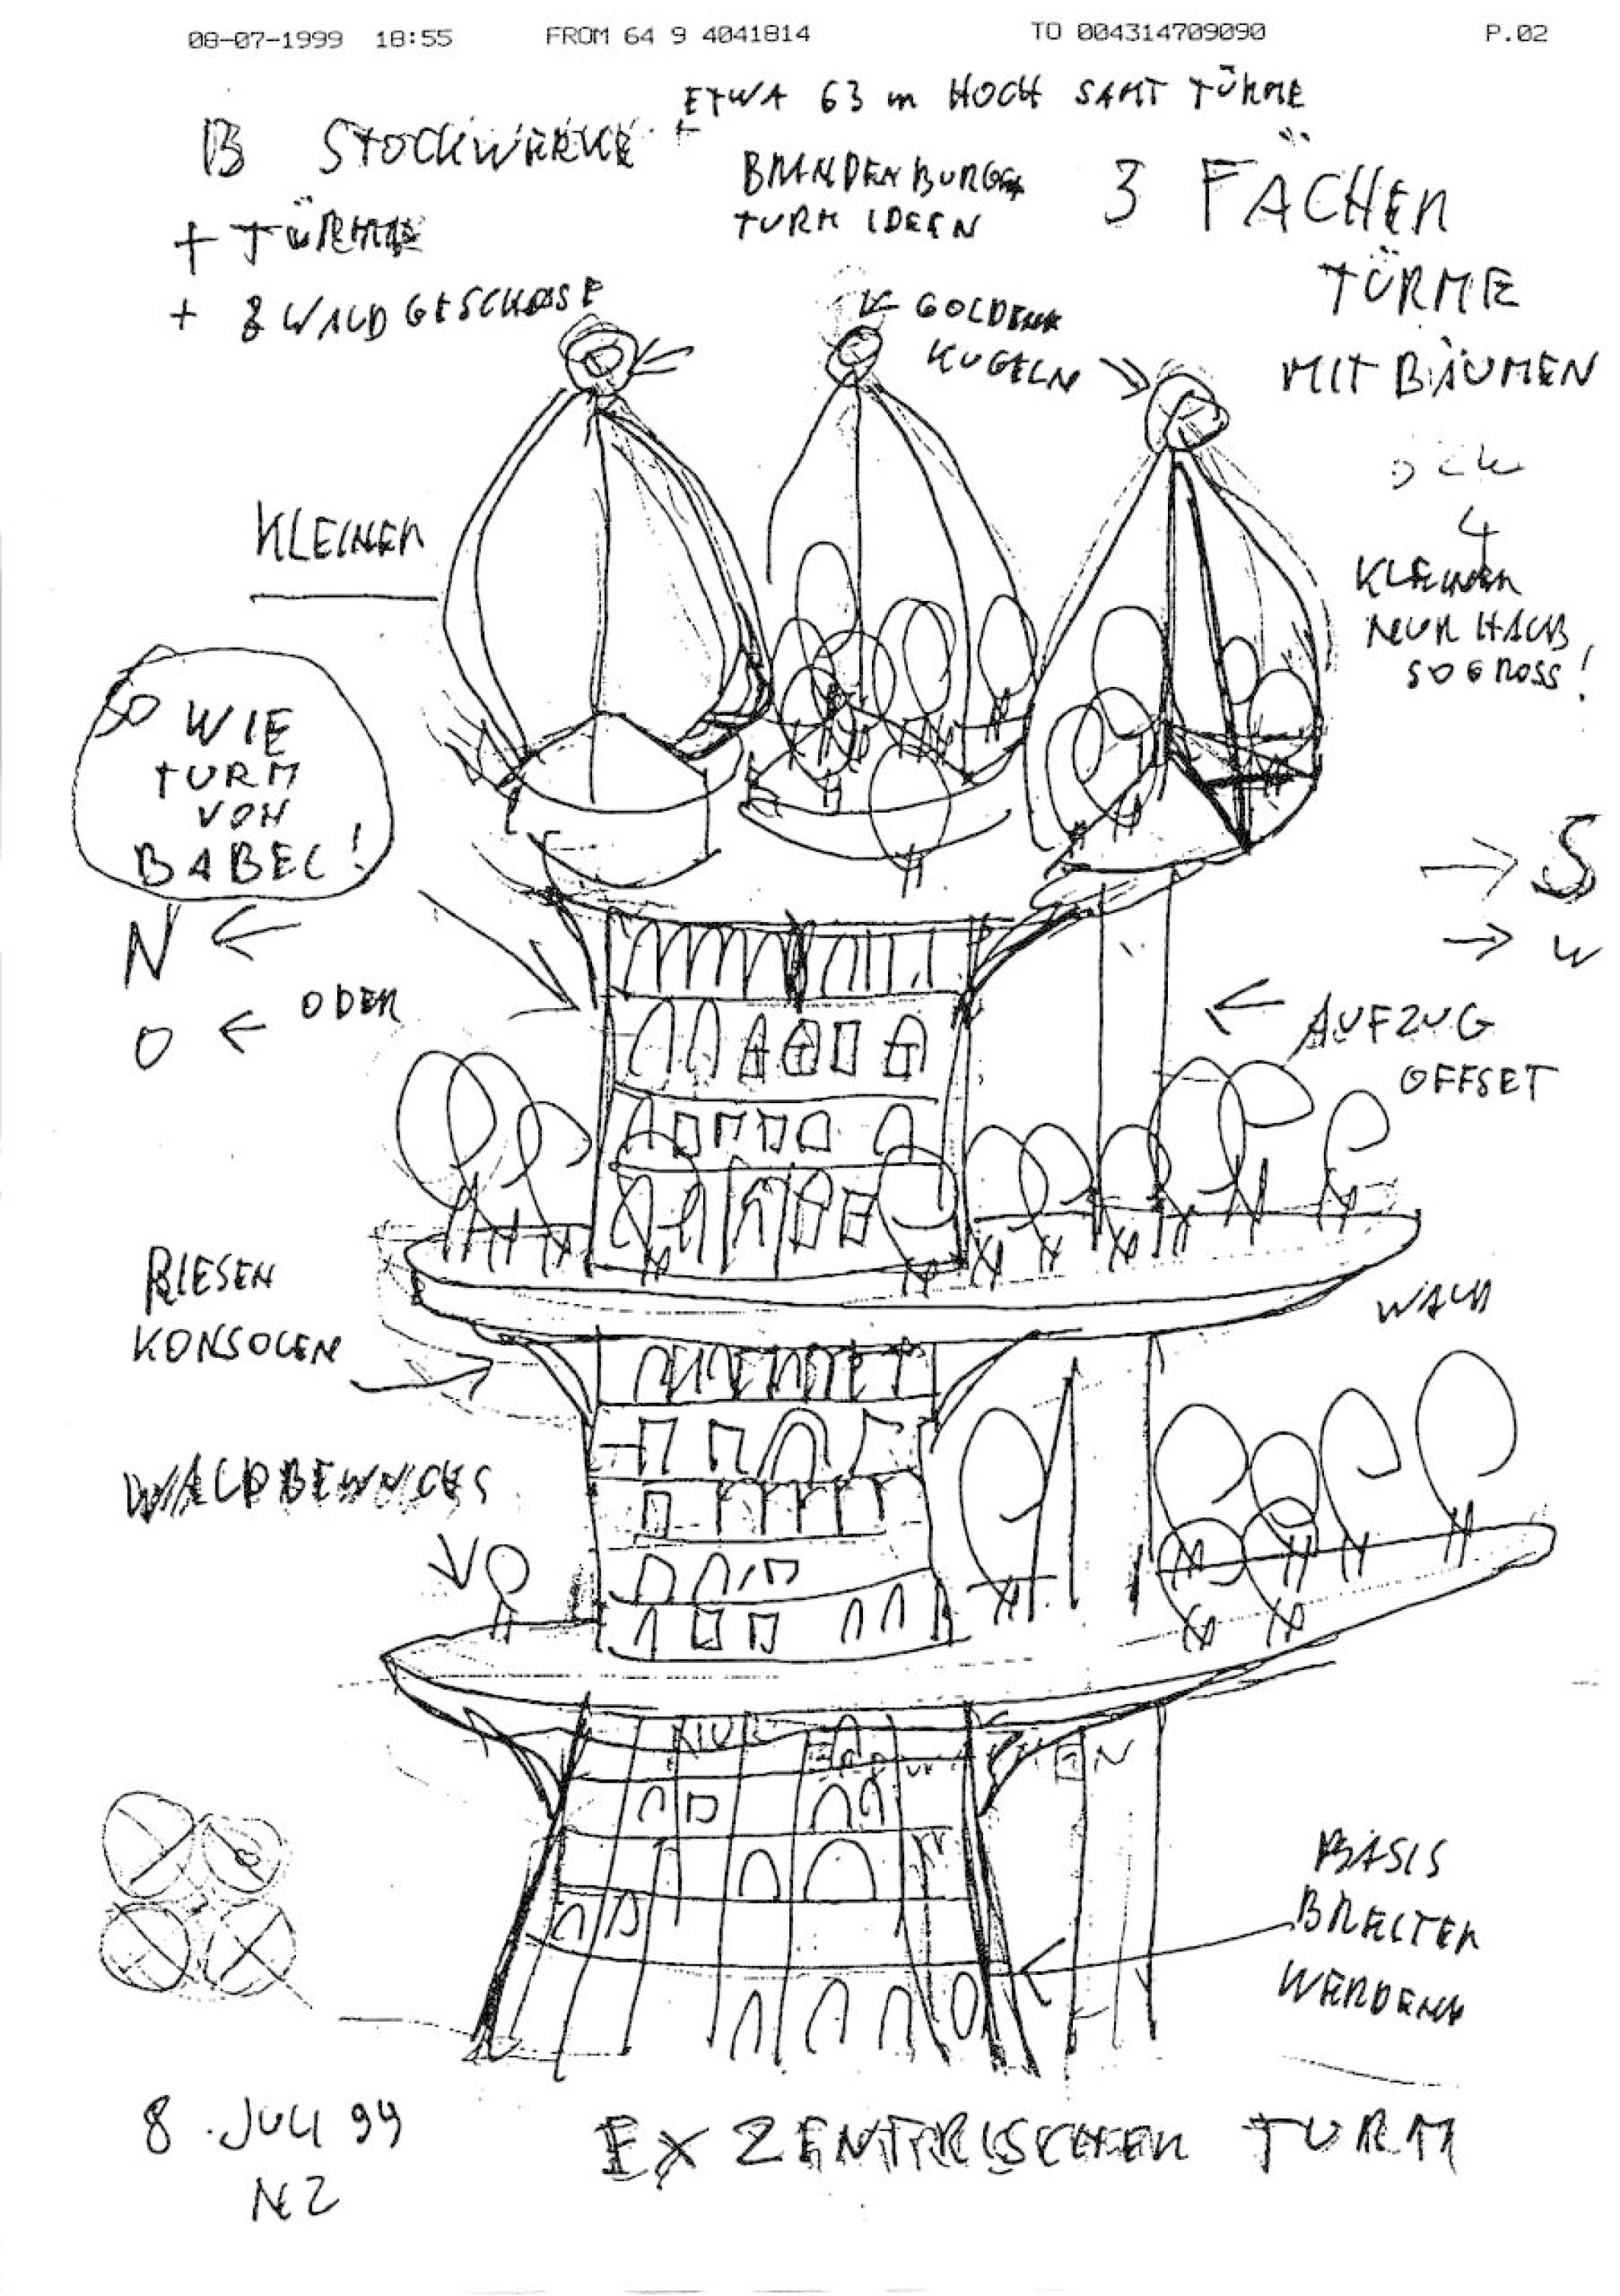 08-07-1999 18:55 FROM 64 9 4041814 TO 004314709090 P.02
ETWA 63 m HOCH SAMT TÜRME
13 STOCKWERKE
+ TÜRME
BRANDENBURG
TURM IDEEN
3 FÄCHER
TÜRME
MIT BÄUMEN
← GOLDENE
KUGELN
4
KLEINER
NUR HALB
SO GROSS!
KLEINER
SO WIE
TURM
VON
BABEL!
N ←
O ← ODER
→ S
→ W
← AUFZUG
OFFSET
RIESEN
KONSOLEN
WALD
BASIS
BREITER
WERDEND
8. JULI 99
NZ
EXZENTRISCHER TURM